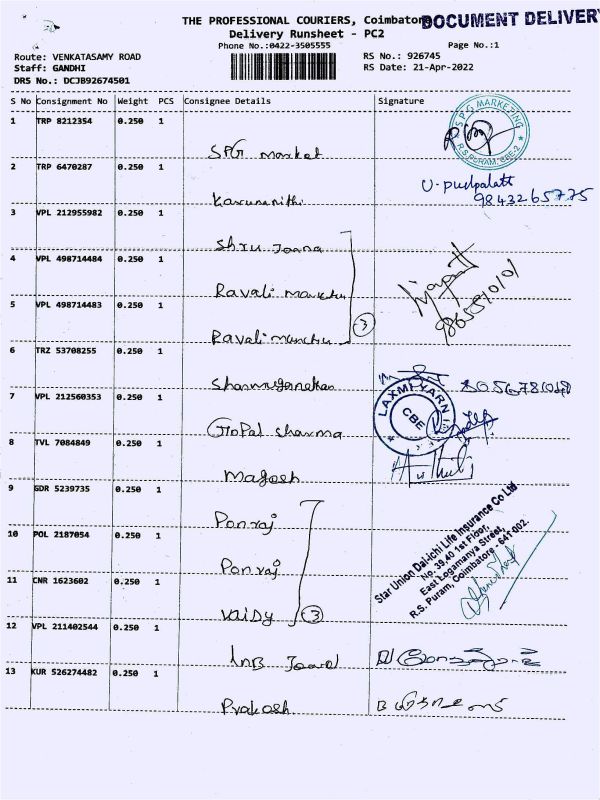 THE PROFESSIONAL COURIERS, Coimbatore
DOCUMENT DELIVERY
Delivery Runsheet - PC2
Phone No.:0422-3505555
Page No.:1
Route: VENKATASAMY ROAD
RS No.: 926745
Staff: GANDHI
RS Date: 21-Apr-2022
DRS No.: DCJB92674501
S No Consignment No Weight PCS Consignee Details Signature
1 TRP 8212354 0.250 1
SPG market
S P G MARKETING
R.S. PURAM, CBE-2
2 TRP 6470287 0.250 1
Karunanithi
3 VPL 212955982 0.250 1
4 VPL 498714484 0.250 1
Ravali
5 VPL 498714483 0.250 1
Ravali
3
6 TRZ 53708255 0.250 1
7 VPL 212560353 0.250 1
GoPal sharma
LAXMI YARN
CBE
8 TVL 7084849 0.250 1
Magesh
9 GDR 5239735 0.250 1
Ponraj
10 POL 2187054 0.250 1
Ponraj
11 CNR 1623602 0.250 1
VaiDy
3
Star Union Dai-ichi Life Insurance Co Ltd
No. 39,40 1st Floor,
East Logamanya Street,
R.S. Puram, Coimbatore - 641 002.
12 VPL 211402544 0.250 1
13 KUR 526274482 0.250 1
Prakash